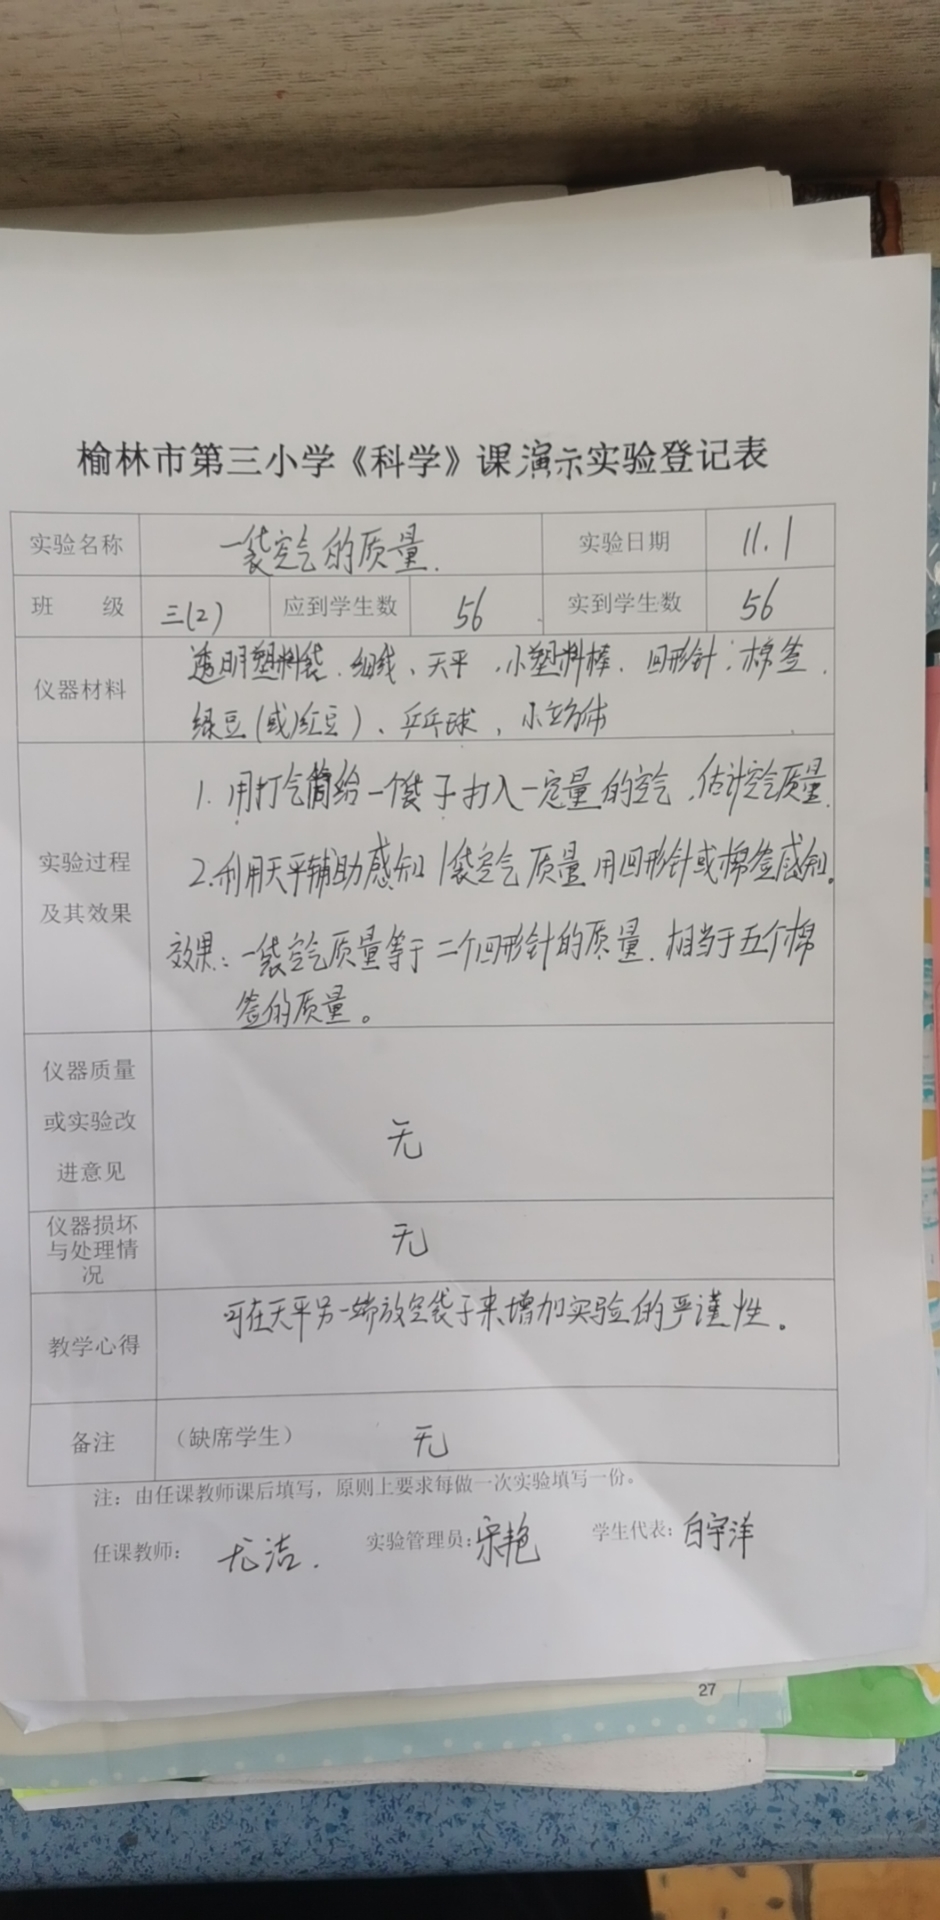 榆林市第三小学《科学》课演示实验登记表
实验名称 一袋空气的质量. 实验日期 11.1
班 级 三(2) 应到学生数 56 实到学生数 56
仪器材料
透明塑料袋、细线、天平、小塑料棒、回形针、棉签、
绿豆(或红豆)、乒乓球、小立方体
实验过程
及其效果
1. 用打气筒给一个袋子打入一定量的空气,估计空气质量.
2.利用天平辅助感知1袋空气质量用回形针或棉签感知。
效果:一袋空气质量等于二个回形针的质量.相当于五个棉
签的质量。
仪器质量
或实验改
进意见
无
仪器损坏
与处理情
况
无
教学心得
可在天平另一端放空袋子来增加实验的严谨性。
备注 (缺席学生) 无
注:由任课教师课后填写,原则上要求每做一次实验填写一份。
任课教师: 尤洁. 实验管理员:宋艳 学生代表:白宇洋
27